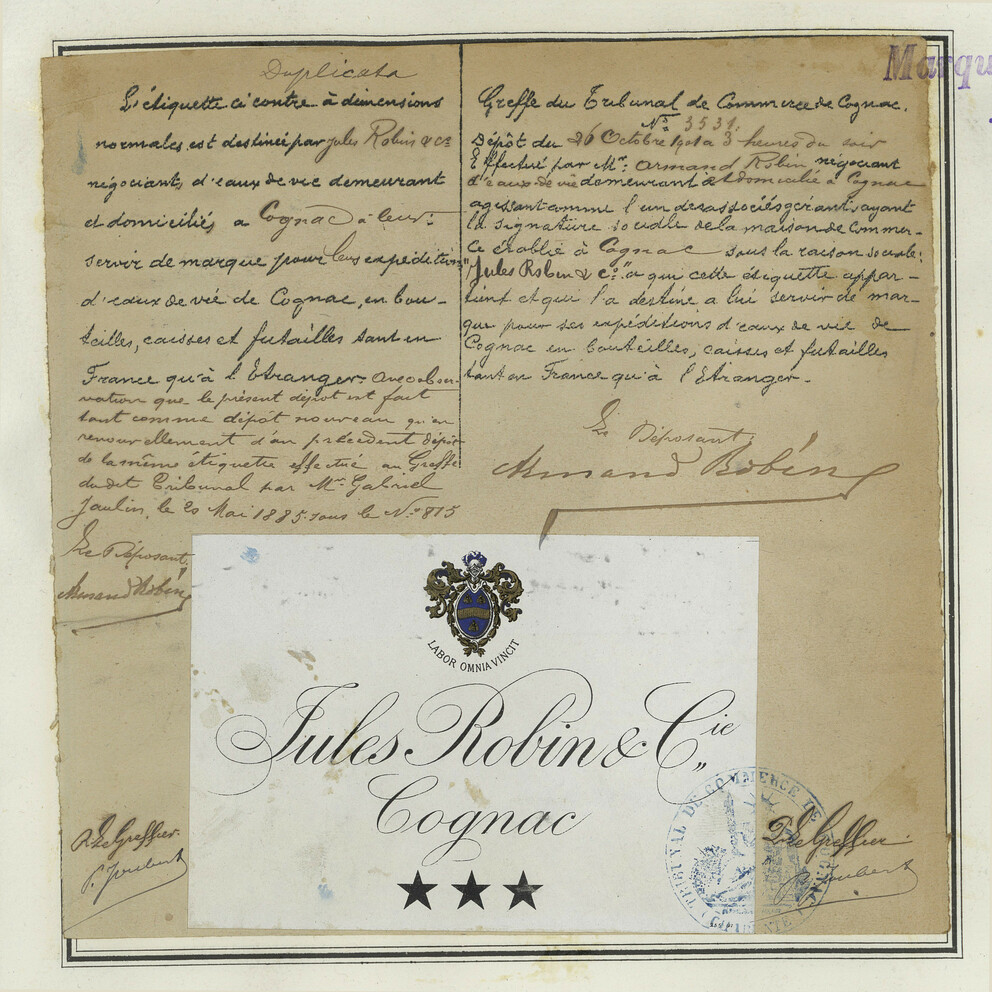 Marqu
Duplicata
L'étiquette ci contre à dimensions
normales est destinée par Jules Robin & Cie
négociants, d'eaux de vie demeurant
et domiciliés a Cognac à leur
servir de marque pour leurs expéditions
d'eaux de vie de Cognac, en bou-
teilles, caisses et futailles tant en
France qu'à l'Etranger. avec obser-
vation que le présent dépôt est fait
tant comme dépôt nouveau qu'en
renouvellement d'un précedent dépôt
de la même étiquette effectué au Greffe
du dit Tribunal par Mr. Gabriel
Jaulin, le 20 Mai 1885 sous le No 815
Le Déposant
Armand Robin
Greffe du Tribunal de Commerce de Cognac.
No 3531.
Dépôt du 26 Octobre 1901 à 3 heures du soir
Effectué par Mr. Armand Robin négociant
d'eaux de vie demeurant et domicilié à Cognac
agissant comme l'un des associés gérants, ayant
la signature sociale de la maison de Commer-
ce établie à Cognac sous la raison sociale:
"Jules Robin & Co." a qui cette étiquette appar-
tient et qui l'a destine a lui servir de mar-
que pour ses expéditions d'eaux de vie de
Cognac en bouteilles, caisses et futailles
tant en France qu'à l'Etranger.
Le Déposant:
Armand Robin
LABOR OMNIA VINCIT
Jules Robin & Cie
Cognac
★★★
TRIBUNAL DE COMMERCE DE COGNAC
Le Greffier.
P. Joubert
Le Greffier
P. Joubert